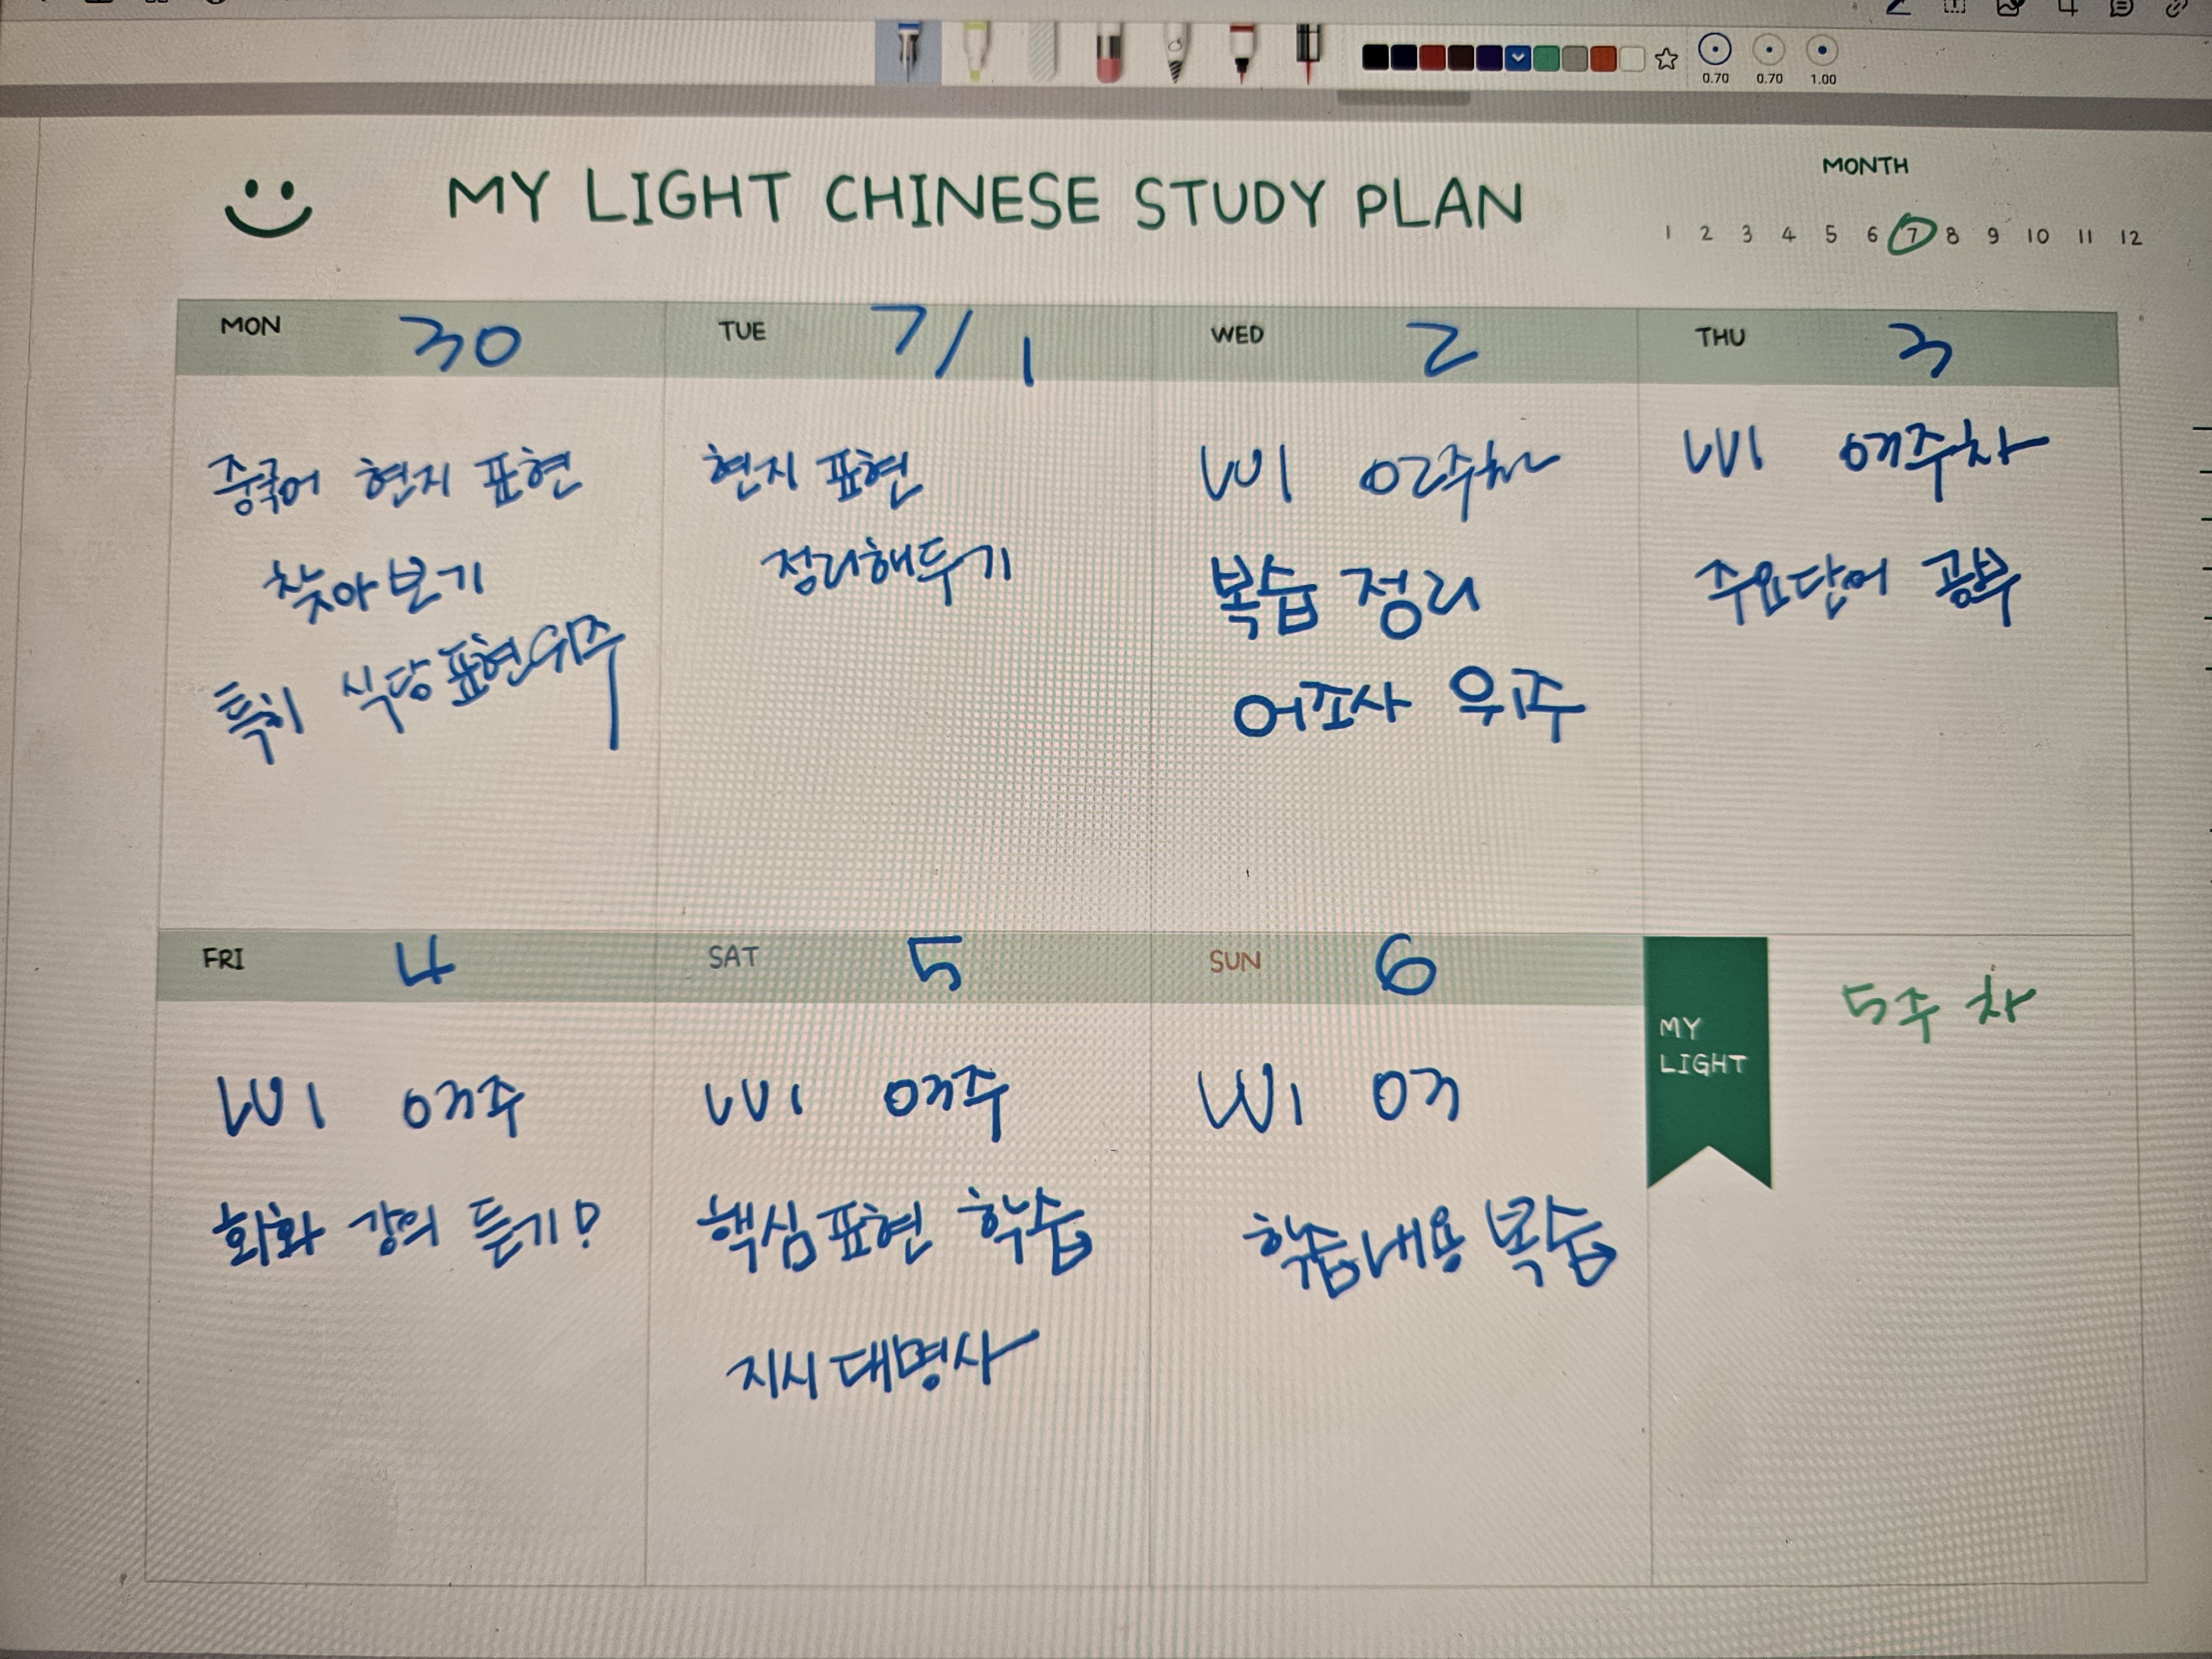 0.70 0.70 1.00
MY LIGHT CHINESE STUDY PLAN
MONTH
1 2 3 4 5 6 7 8 9 10 11 12
MON 30
중국어 현지 표현
찾아보기
특히 식당 표현 위주
TUE 7/1
현지 표현
정리해두기
WED 2
02주차
복습 정리
어조사 위주
THU 3
03주차
주요단어 공부
FRI 4
03주
회화 강의 듣기!
SAT 5
03주
핵심표현 학습
지시대명사
SUN 6
03
학습내용 복습
MY
LIGHT
5주차